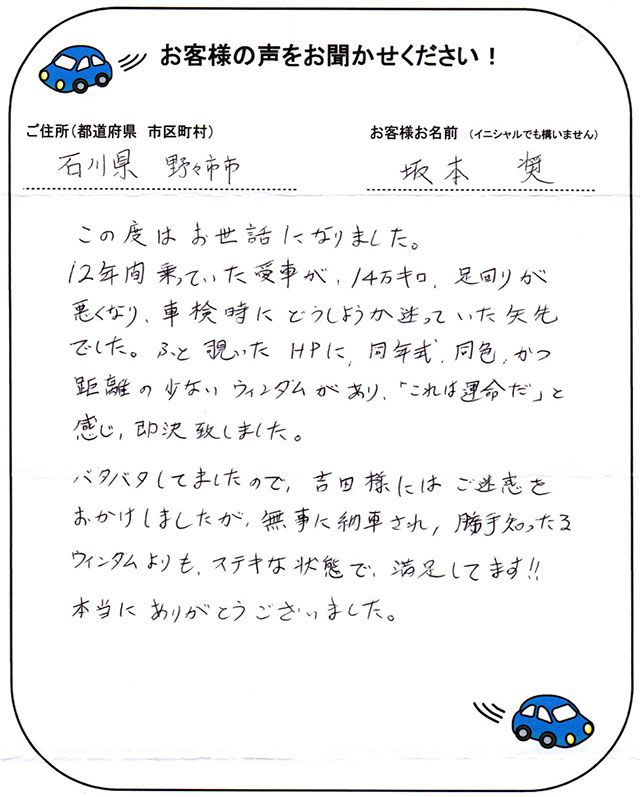 お客様の声をお聞かせください！
ご住所（都道府県 市区町村）
お客様お名前 （イニシャルでも構いません）
石川県 野々市市
坂本 奨
この度はお世話になりました。
12年間乗っていた愛車が、14万キロ、足回りが
悪くなり、車検時にどうしようか迷っていた矢先
でした。ふと覗いたHPに、同年式、同色、かつ
距離の少ないウィンダムがあり、「これは運命だ」と
感じ、即決致しました。
バタバタしてましたので、吉田様にはご迷惑を
おかけしましたが、無事に納車され、勝手知ったる
ウィンダムよりも、ステキな状態で、満足してます!!
本当にありがとうございました。